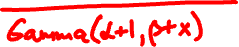 Gamma(α+1, β+x)